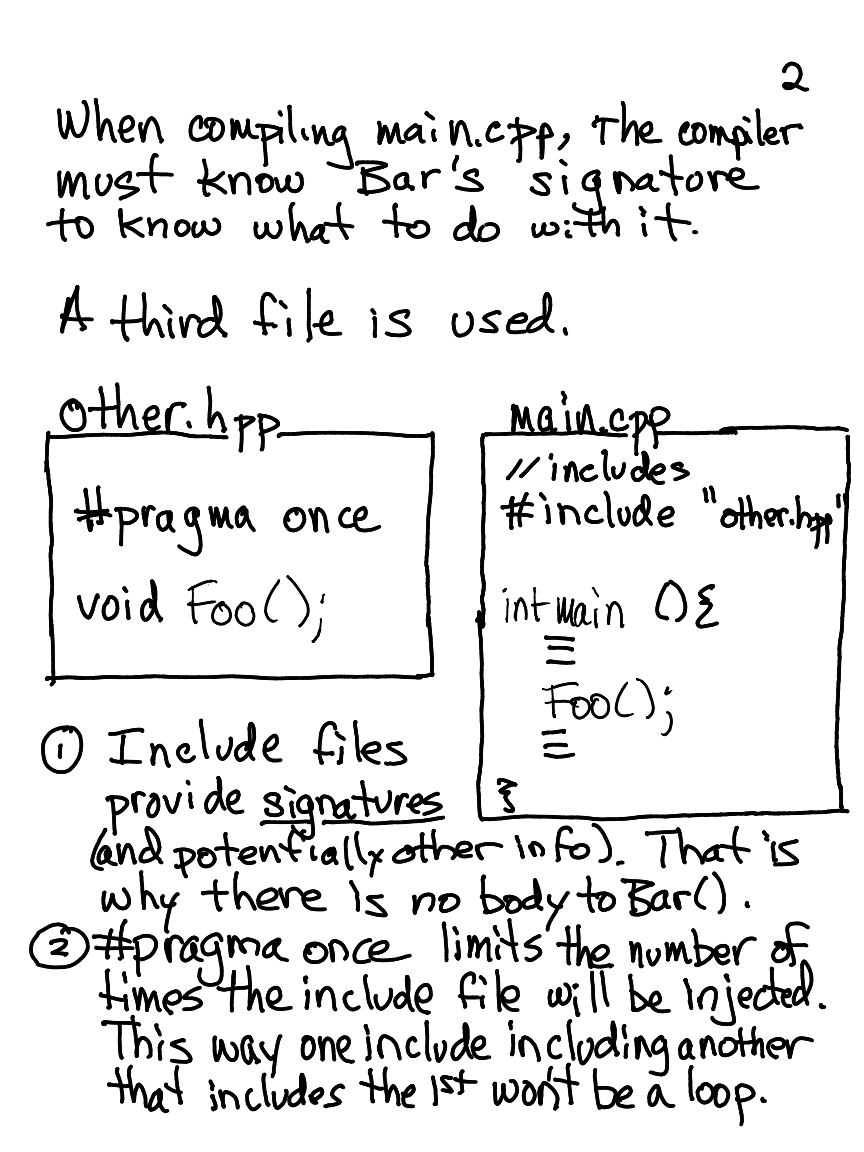 2
When compiling main.cpp, The compiler
must know Bar's signatore
to know what to do with it.
A third file is used.
other.hpp
#pragma once
void Foo();
main.cpp
// includes
#include "other.hpp"
int main (){
Foo();
}
① Include files
provide signatures
(and potentially other info). That is
why there is no body to Bar().
② #pragma once limits the number of
times the include file will be injected.
This way one include including another
that includes the 1st won't be a loop.